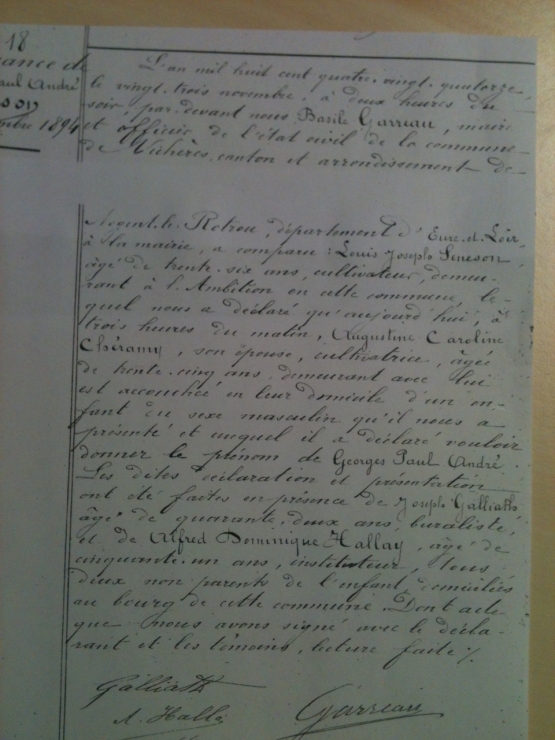 18
ance de
aul André
son
mbre 1894
L'an mil huit cent quatre-vingt-quatorze,
le vingt-trois novembre, à deux heures du
soir, par devant nous Basile Garreau, maire
et officier de l'état civil de la commune
de Vichères, canton et arrondissement de
Nogent-le-Rotrou, département d'Eure-et-Loir,
à la mairie, a comparu : Louis Joseph Sineson
âgé de trente-six ans, cultivateur, demeu-
rant à l'Ambition en cette commune, le-
quel nous a déclaré qu'aujourd'hui, à
trois heures du matin, Augustine Caroline
Chéramy, son épouse, cultivatrice, âgée
de trente-cinq ans, demeurant avec lui
est accouchée en leur domicile d'un en-
fant du sexe masculin qu'il nous a
présenté et auquel il a déclaré vouloir
donner le prénom de Georges Paul André.
Les dites déclaration et présentation
ont été faites en présence de Joseph Galliath
âgé de quarante-deux ans, buraliste,
et de Alfred Dominique Hallay, âgé de
cinquante-un ans, instituteur, tous
deux non parents de l'enfant, domiciliés
au bourg de cette commune. Dont acte
que nous avons signé avec le décla-
rant et les témoins, lecture faite ./.
Galliath
A. Halla
Garreau